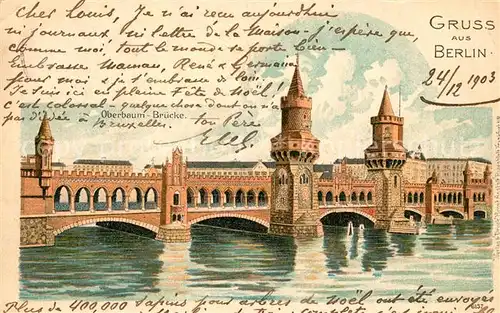 cher Louis, Je n'ai reçu aujourd'hui
ni journaux, ni lettre de la Maison - j'espère que,
comme moi, tout le monde se porte bien -
Embrasse Maman, René & Germaine
pour moi & je t'embrasse de loin.
Je suis ici en pleine Fête de Noël !
c'est colossal - quelque chose dont on n'a
pas d'idée à Bruxelles. ton Père
GRUSS
AUS
BERLIN.
24/12 1903
Oberbaum-Brücke.
Plus de 400,000 sapins pour arbres de Noël ont été envoyés